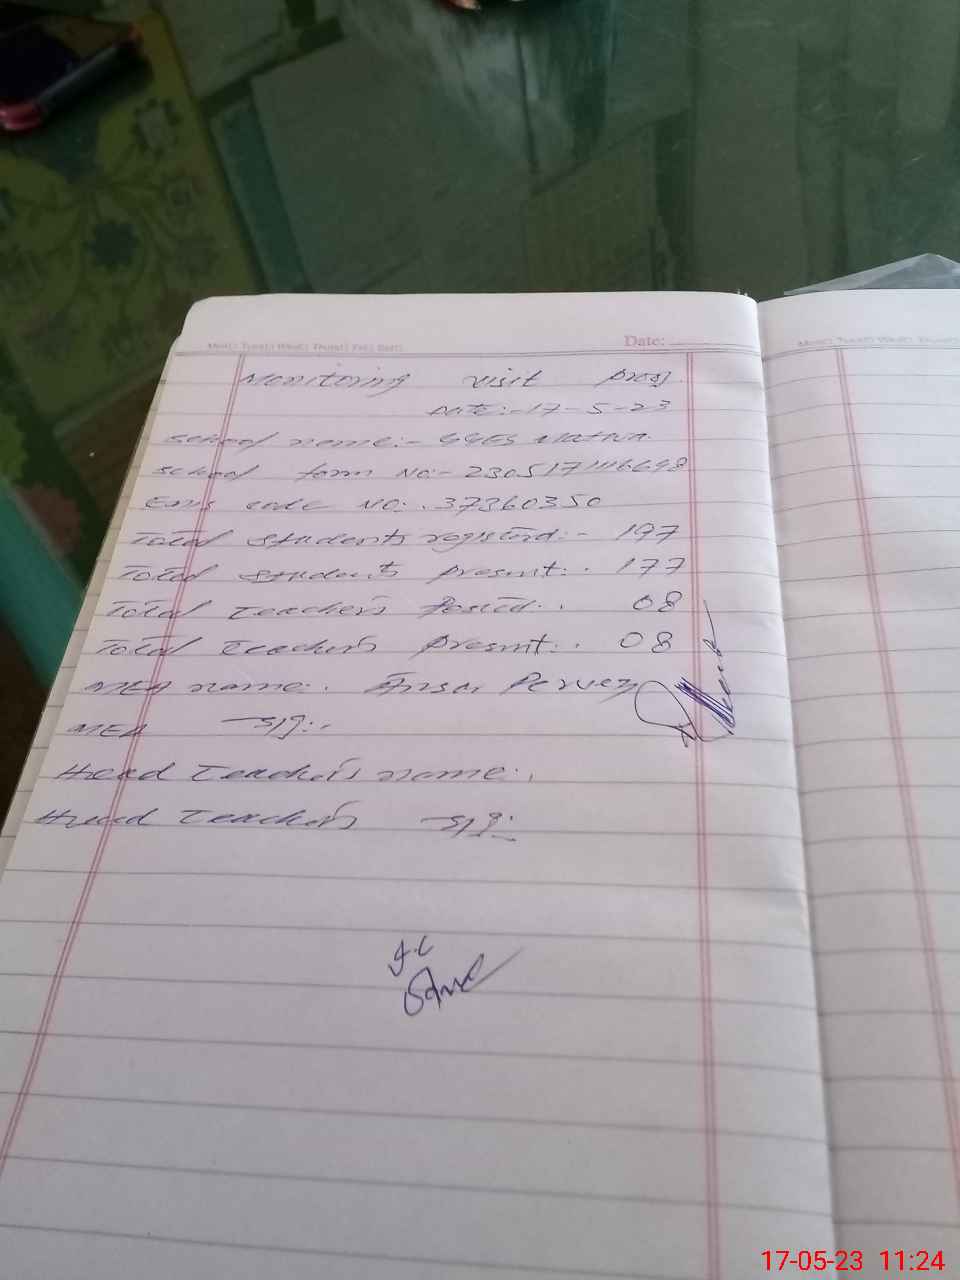 Date:
Monitoring visit proof
Date:- 17-5-23
School name:- GGES
School form No:- 
Emis code No:. 37360350
Total students registerd:- 197
Total students present:. 177
Total teachers Posted:. 08
Total teachers present:. 08
MEA name:. Ansar Pervez
MEA sig:.
Head teachers name:.
Head teachers sig:
17-05-23 11:24